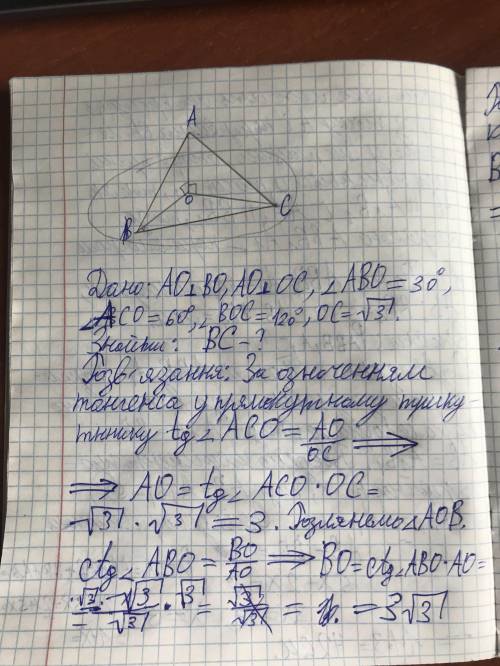 A
O
B
C
Дано: AO⊥BO, AO⊥OC, ∠ABO=30°,
∠ACO=60°, ∠BOC=120°, OC=√3.
Знайти: BC-?
Розв'язання: За означенням
тангенса у прямокутному трику-
тнику tg∠ACO= AO/OC ⟹
⟹ AO=tg∠ACO·OC=
√3·√3=3. Розглянемо △AOB.
ctg∠ABO= BO/AO ⟹ BO=ctg∠ABO·AO=
= 3√3